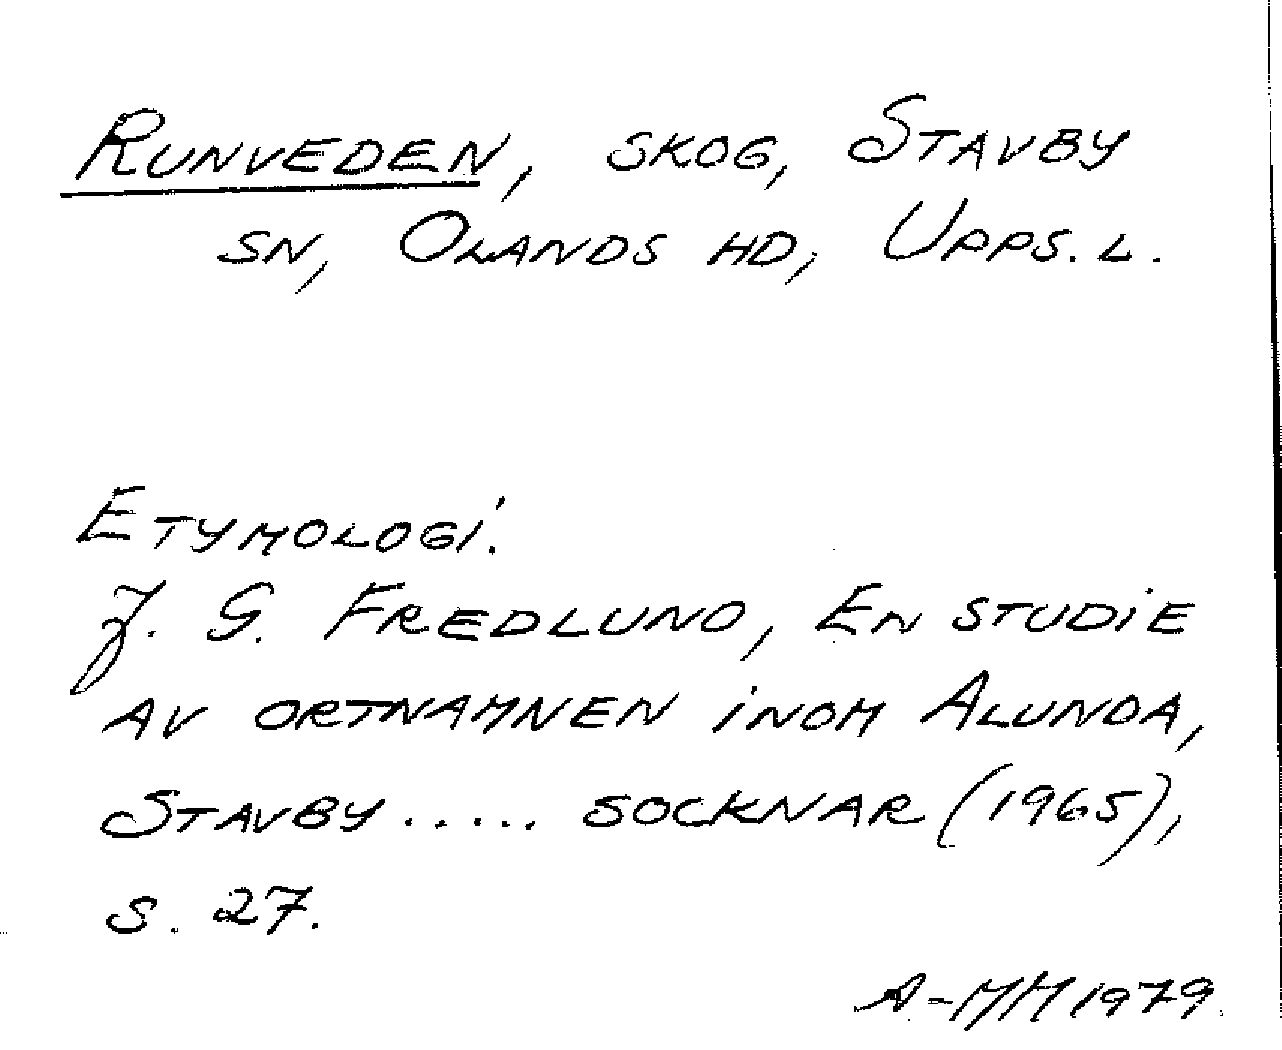 RUNVEDEN, SKOG, STAVBY
SN, OLANDS HD, UPPS. L.
ETYMOLOGI.
J. G. FREDLUND, EN STUDIE
AV ORTNAMNEN INOM ALUNDA,
STAVBY ..... SOCKNAR (1965),
S. 27.
A-MH 1979.